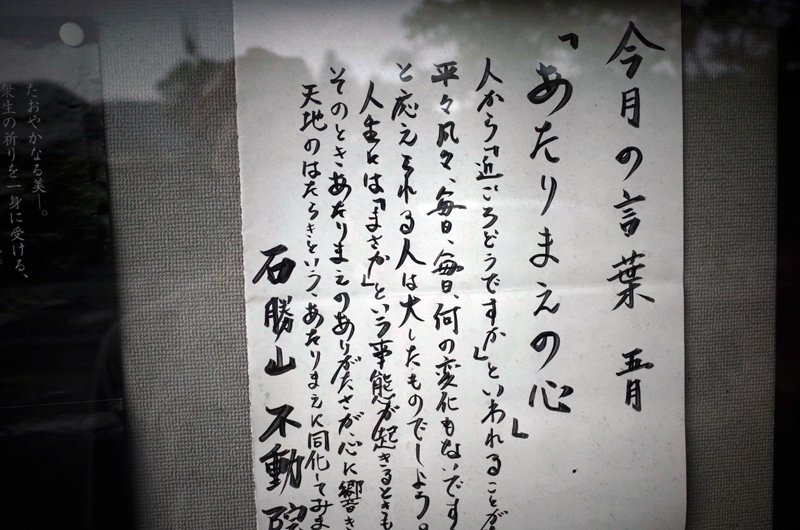 今月の言葉 五月
「あたりまえの心」
人から「近ごろどうですか」といわれることが
平々凡々、毎日、毎日、何の変化もないです
と応えられる人は大したものでしょう。
人生とは「まさか」という事態が起きるときも
そのときあたりまえのありがたさが心に響き
天地のはたらきという、あたりまえに同化してみま
石勝山 不動院
たおやかなる美―。
衆生の祈りを一身に受ける、